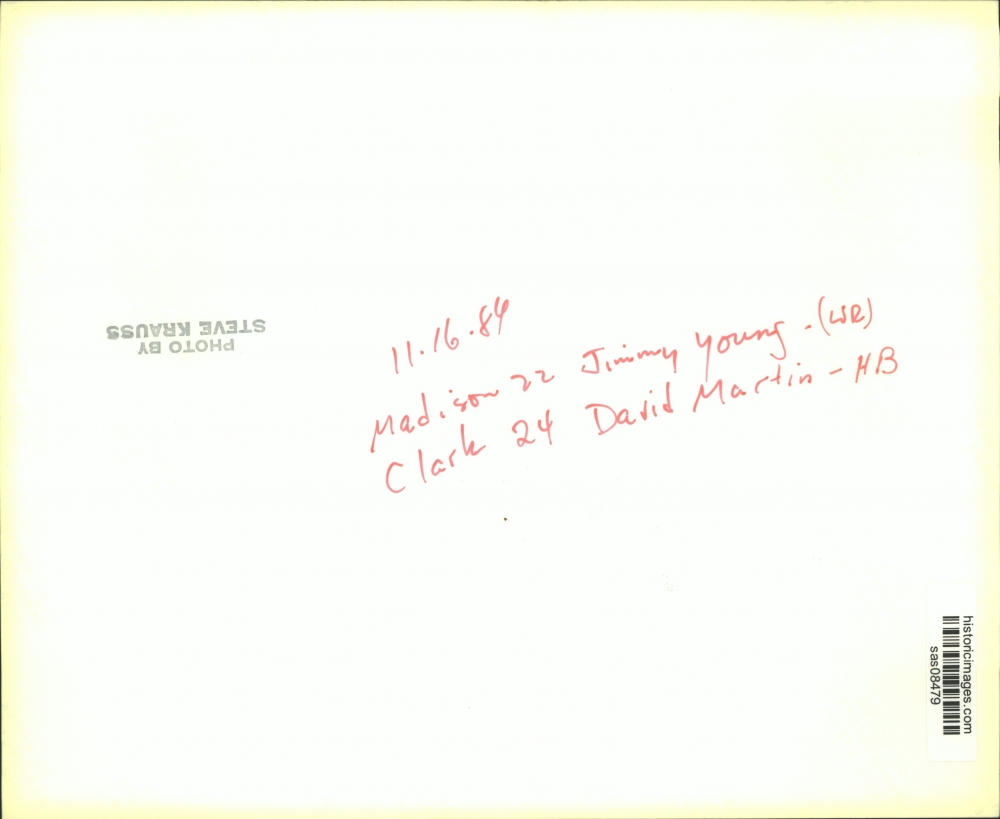 11.16.84
Madison 22 Jimmy Young - (WR)
Clark 24 David Martin - HB
PHOTO BY
STEVE KRAUSS
historicimages.com
sas08479